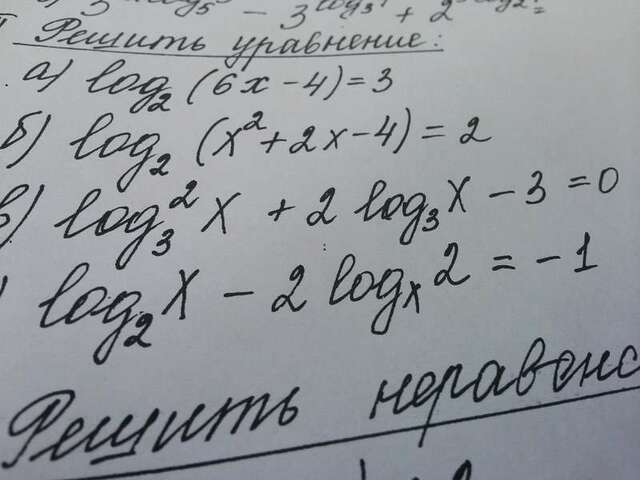 Решить уравнение:
а) log₂(6x-4)=3
б) log₂(x²+2x-4)=2
в) log₃²x+2log₃x-3=0
log₂x-2logₓ2=-1
Решить